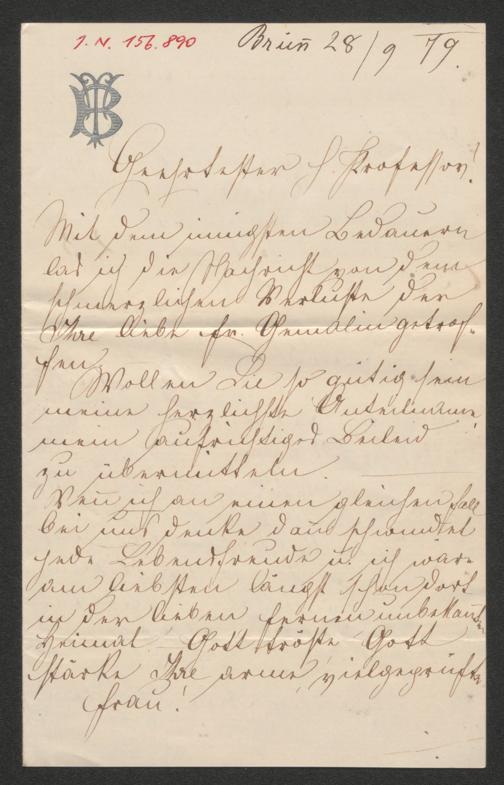 I. N. 156.890
Brün̄ 28/9 79.
Geehrtester H. Professor!
Mit dem innigsten Bedauern
las ich die Nachricht von dem
schmerzlichen Verluste der
Ihre liebe Fr. Gemalin getrof-
fen
Wollen Sie so gütig sein
meine herzlichste Anteilname
mein aufrichtiges Beileid
zu übermitteln.
Wen̄ ich an einen gleichen Fall
bei uns denke dan̄ schwindet
jede Lebensfreude u. ich wäre
am liebsten längst schon dort
in der lieben fernen unbekan̄ten
Heimat. Gott tröste Gott
stärke Ihre arme, vielgeprüfte
Frau!